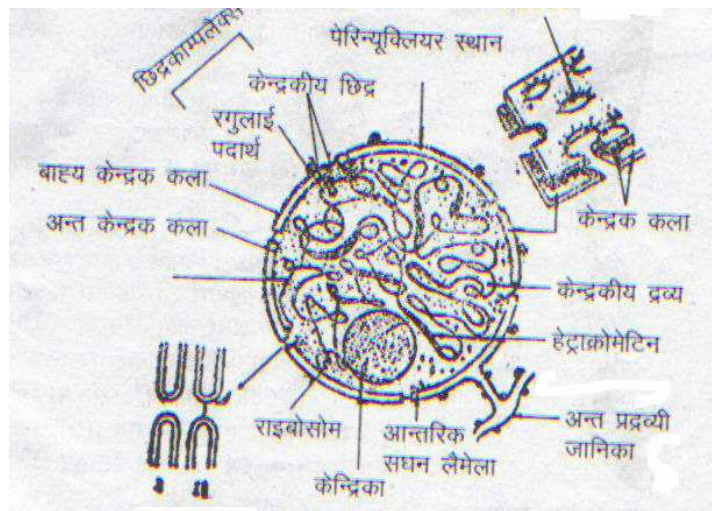 छिद्रकाम्पलैक्स
पेरिन्यूक्लियर स्थान
केन्द्रकीय छिद्र
रगुलाई
पदार्थ
बाह्य केन्द्रक कला
अन्त केन्द्रक कला
केन्द्रक कला
केन्द्रकीय द्रव्य
हेट्राक्रोमेटिन
राइबोसोम
आन्तरिक
सघन लैमेला
अन्त प्रद्रव्यी
जानिका
केन्द्रिका
I II